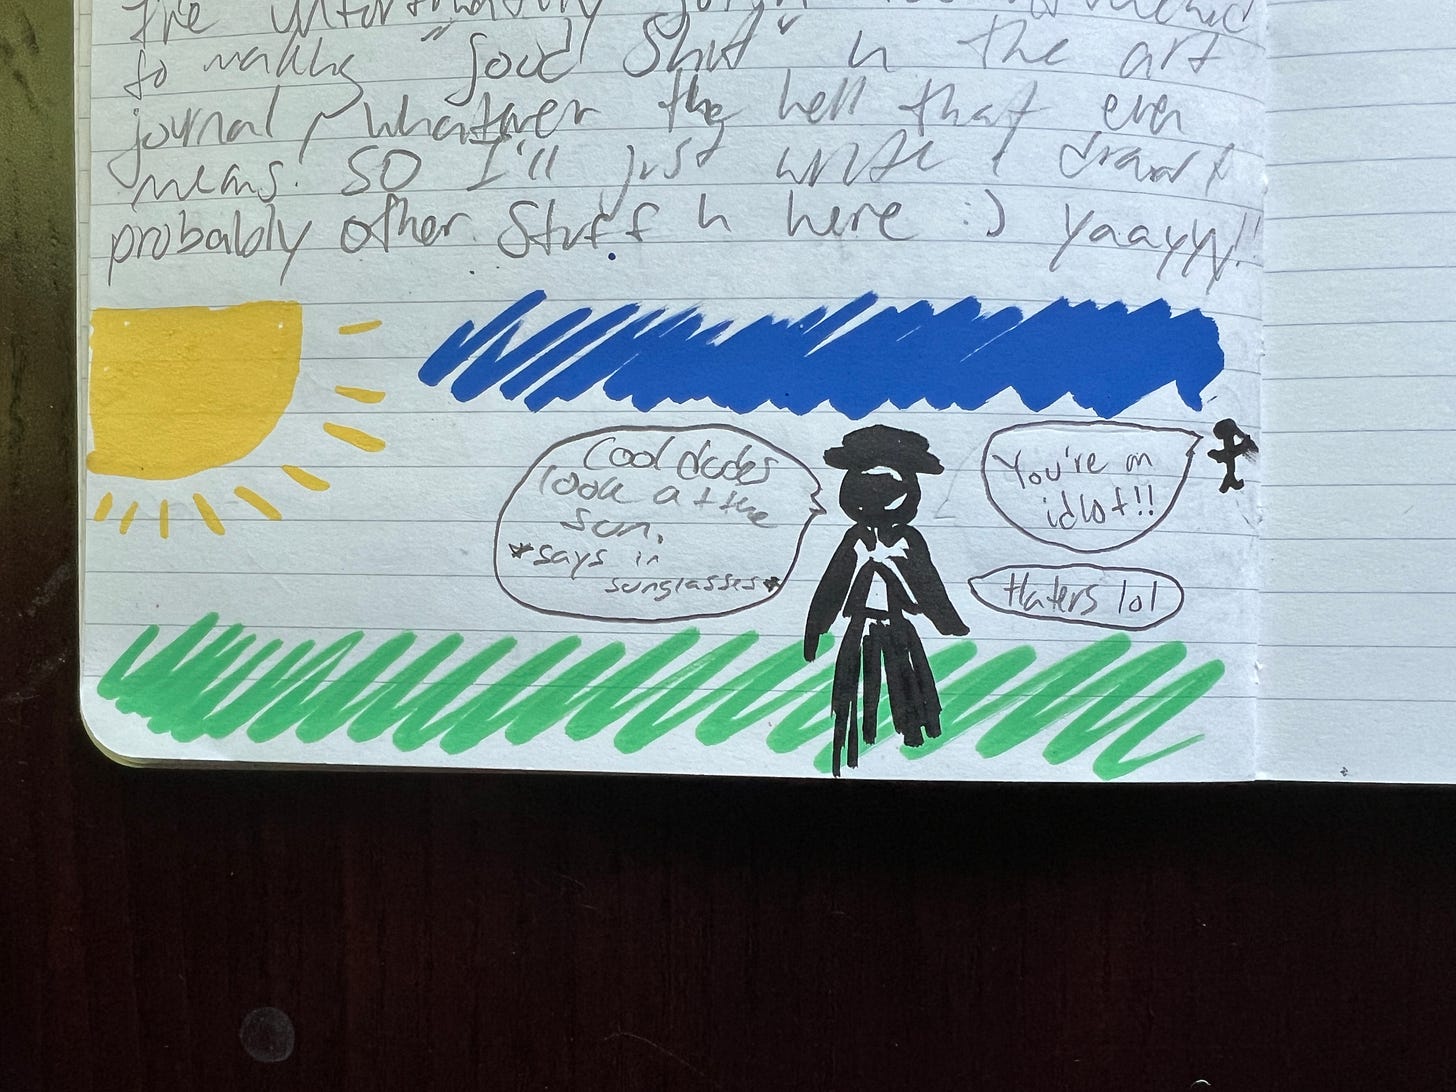 to making "good shit" in the art
journal, whatever the hell that even
means. SO I'll just write & draw &
probably other stuff in here :) yaayyy!!
Cool dudes
look at the
sun.
*says in
sunglasses*
You're an
idiot!!
Haters lol